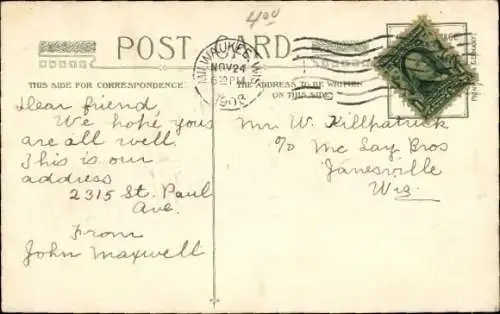 400
POST CARD
MILWAUKEE, WIS.
NOV 24
1908
THIS SIDE FOR CORRESPONDENCE
THE ADDRESS TO BE WRITTEN
ON THIS SIDE
Dear friend,
We hope you
are all well.
This is our
address
2315 St. Paul
Ave.
From
John Maxwell
Mr W. Killpatrick
c/o Mc Lay Bros
Janesville
Wis.